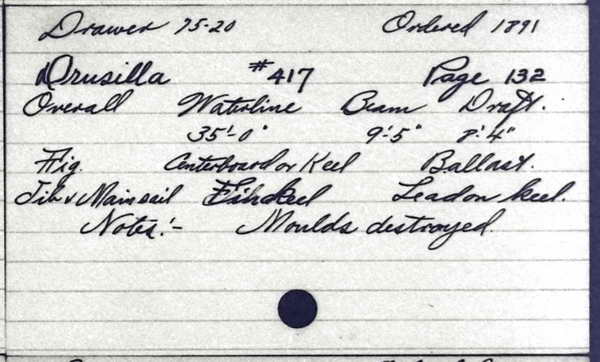 Drawer 75-20 Ordered 1891
Drusilla #417 Page 132
Overall Waterline Beam Draft.
35'-0" 9'-5" 8'-4"
Rig. Centerboard or Keel Ballast.
Jib & Mainsail Fin Keel Lead on keel.
Notes:- Moulds destroyed.